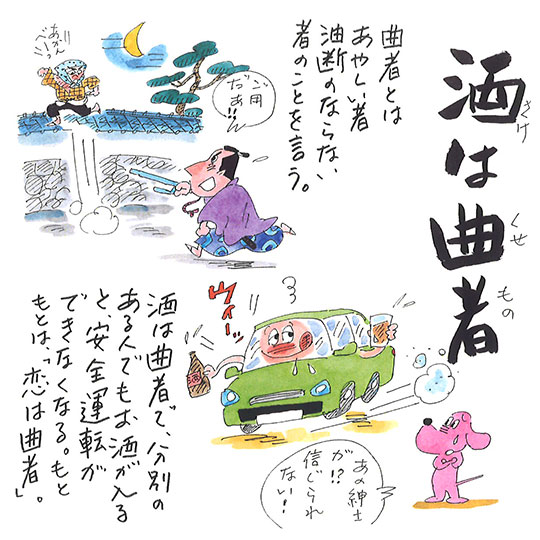 酒は曲者
さけ
くせ
もの
曲者とは
あやしい者
油断のならない
者のことを言う。
ご用
だぁ!!
あっかん
べーっ
ウィーッ
酒は曲者で、分別の
ある人でもお酒が入る
と、安全運転が
できなくなる。もと
もとは、「恋は曲者」。
あの紳士
が!?
信じられ
ない!